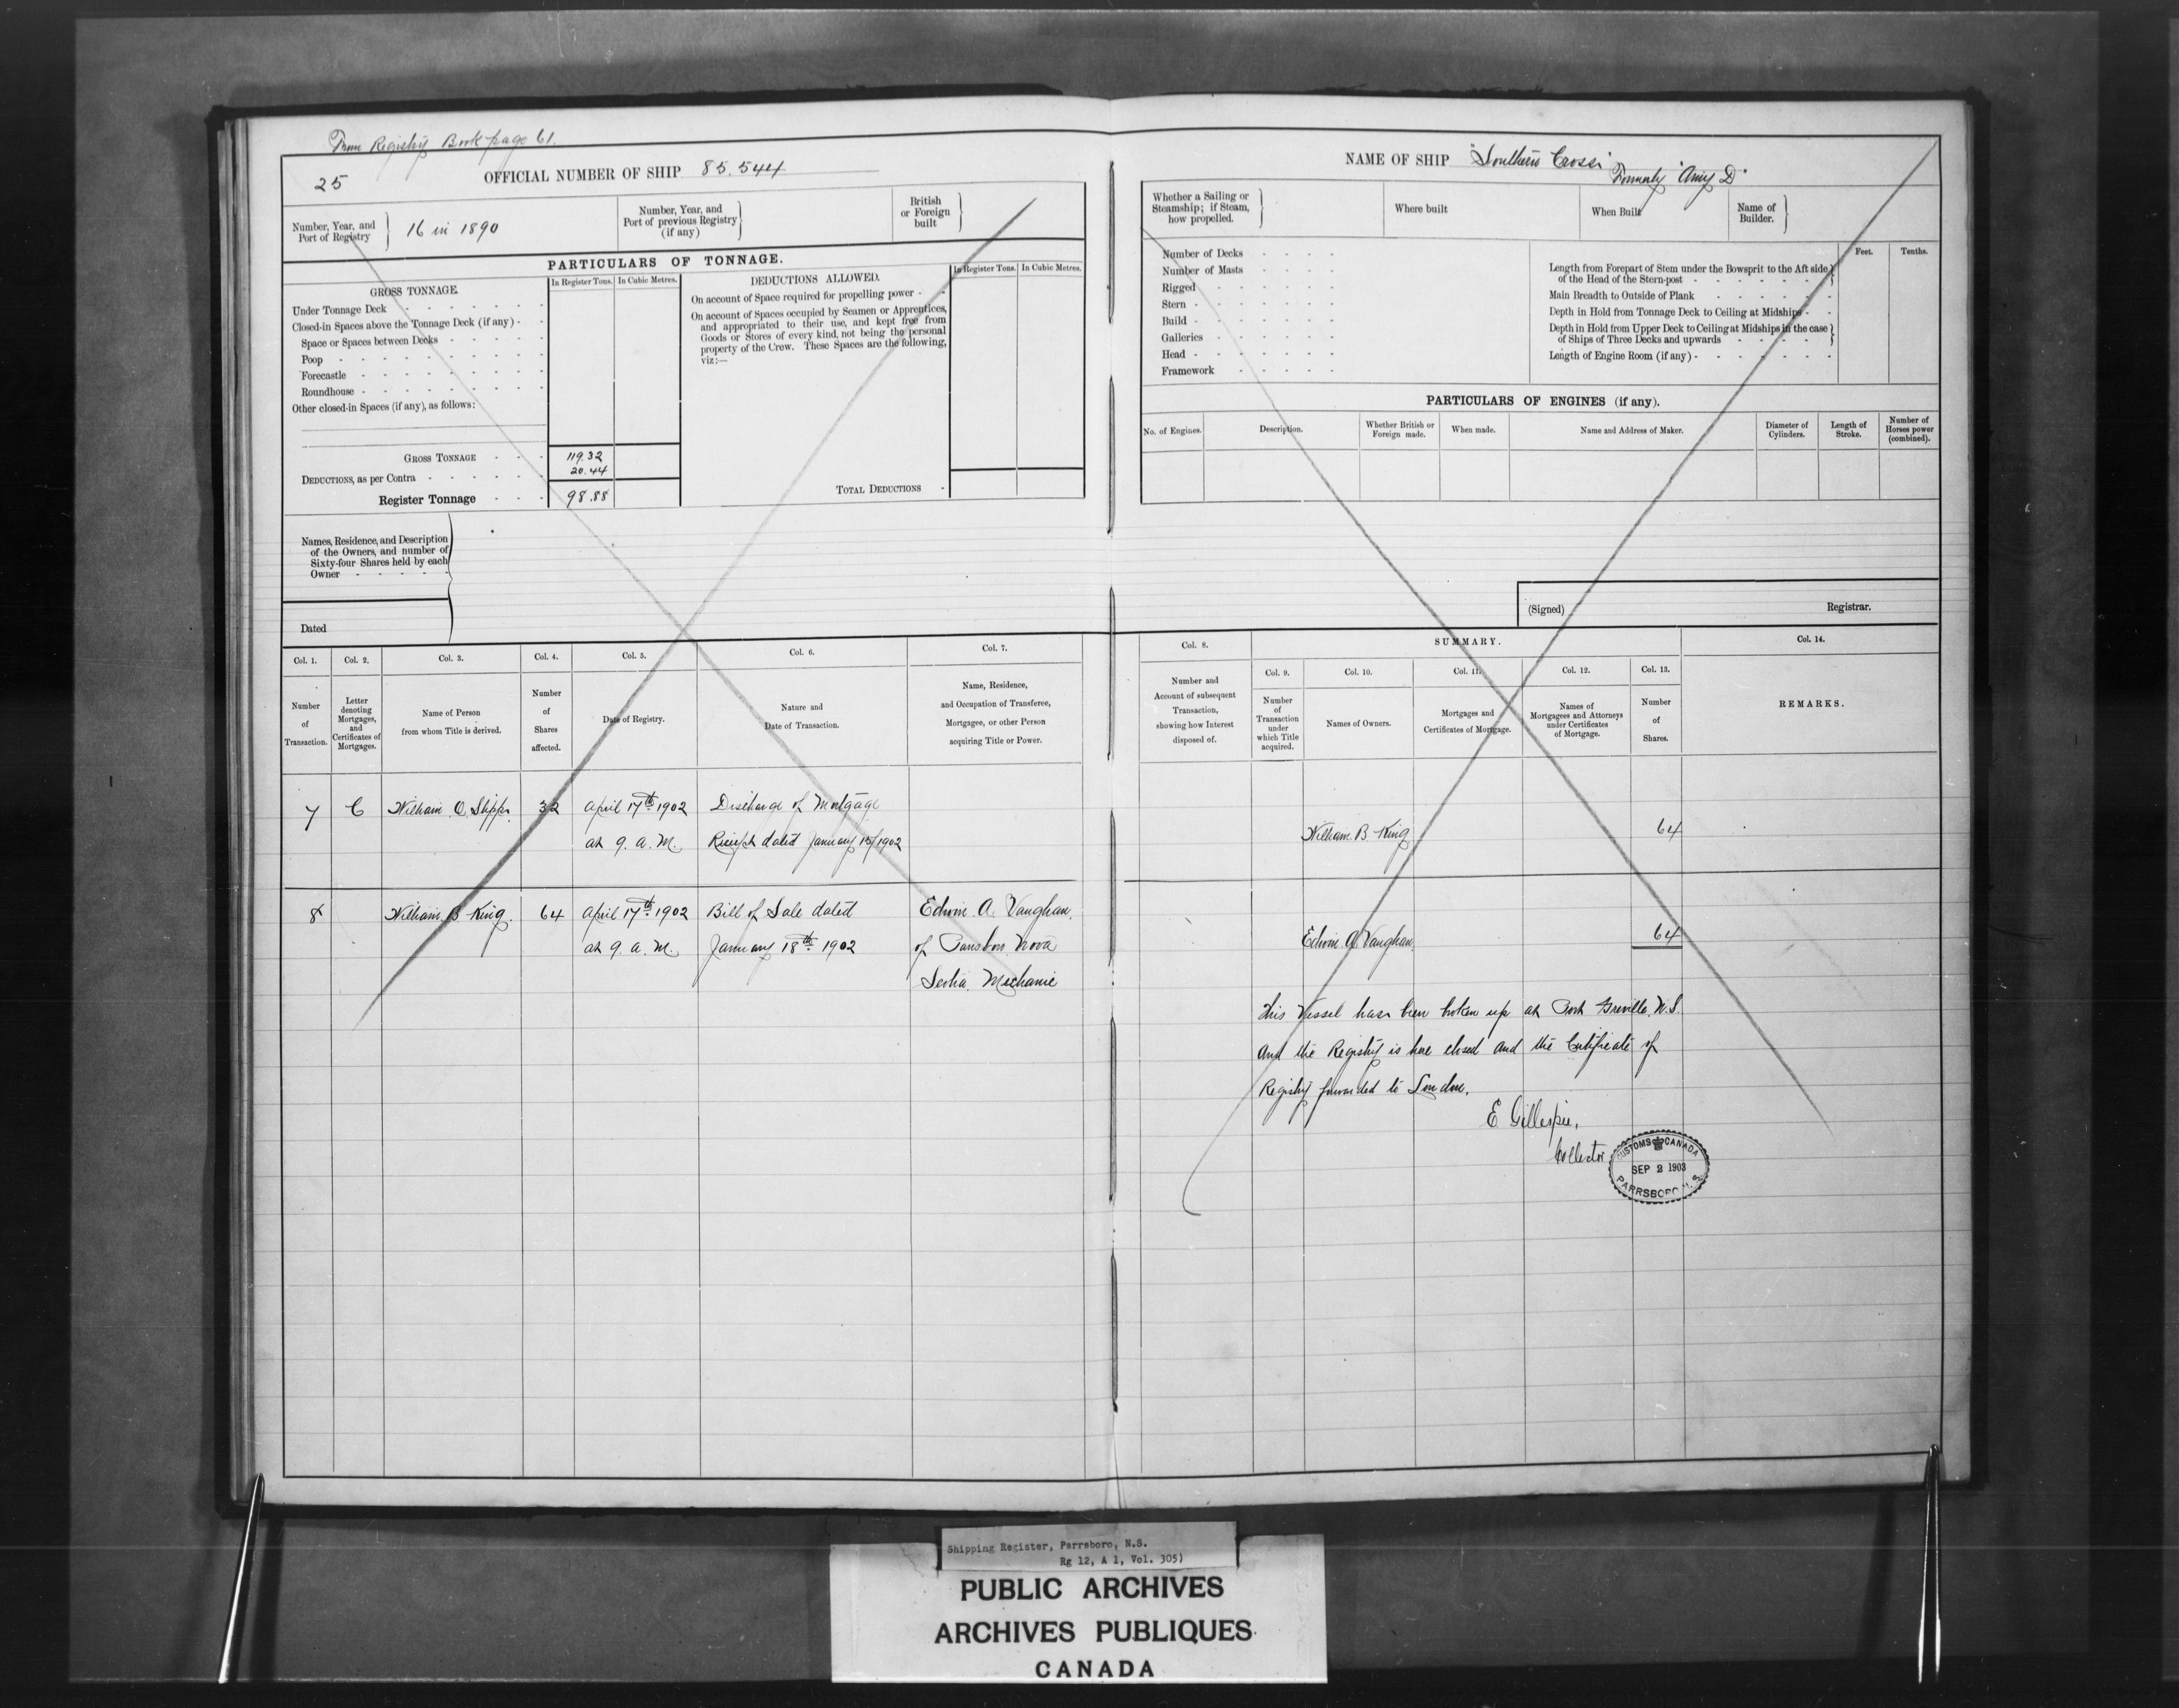 From Registry Book page 61.
25
OFFICIAL NUMBER OF SHIP 85.544
Number, Year, and Port of Registry } 16 in 1890
Number, Year, and Port of previous Registry (if any) }
British or Foreign built }
PARTICULARS OF TONNAGE.
GROSS TONNAGE
In Register Tons. In Cubic Metres.
Under Tonnage Deck
Closed-in Spaces above the Tonnage Deck (if any)
Space or Spaces between Decks
Poop
Forecastle
Roundhouse
Other closed-in Spaces (if any), as follows:
GROSS TONNAGE 119.32
DEDUCTIONS, as per Contra 20.44
Register Tonnage 98.88
DEDUCTIONS ALLOWED.
In Register Tons. In Cubic Metres.
On account of Space required for propelling power
On account of Spaces occupied by Seamen or Apprentices,
and appropriated to their use, and kept free from
Goods or Stores of every kind, not being the personal
property of the Crew. These Spaces are the following,
viz:—
TOTAL DEDUCTIONS
Names, Residence, and Description
of the Owners, and number of
Sixty-four Shares held by each
Owner
Dated
NAME OF SHIP "Southern Cross"
Formerly "Amy D"
Whether a Sailing or Steamship; if Steam, how propelled. }
Where built
When Built
Name of Builder. }
Number of Decks
Number of Masts
Rigged
Stern
Build
Galleries
Head
Framework
Feet. Tenths.
Length from Forepart of Stem under the Bowsprit to the Aft side
of the Head of the Stern-post
Main Breadth to Outside of Plank
Depth in Hold from Tonnage Deck to Ceiling at Midships
Depth in Hold from Upper Deck to Ceiling at Midships in the case
of Ships of Three Decks and upwards
Length of Engine Room (if any)
PARTICULARS OF ENGINES (if any).
No. of Engines.
Description.
Whether British or Foreign made.
When made.
Name and Address of Maker.
Diameter of Cylinders.
Length of Stroke.
Number of Horses power (combined).
(Signed) Registrar.
Col. 1. Col. 2. Col. 3. Col. 4. Col. 5. Col. 6. Col. 7.
Number of Transaction.
Letter denoting Mortgages, and Certificates of Mortgages.
Name of Person from whom Title is derived.
Number of Shares affected.
Date of Registry.
Nature and Date of Transaction.
Name, Residence, and Occupation of Transferee, Mortgagee, or other Person acquiring Title or Power.
Col. 8. SUMMARY. Col. 14.
Col. 9. Col. 10. Col. 11. Col. 12. Col. 13.
Number and Account of subsequent Transaction, showing how Interest disposed of.
Number of Transaction under which Title acquired.
Names of Owners.
Mortgages and Certificates of Mortgage.
Names of Mortgagees and Attorneys under Certificates of Mortgage.
Number of Shares.
REMARKS.
7 C William 32 April 17th 1902 Discharge of Mortgage
at 9. a. M. Receipt dated January 1902
William B King 64
8 William B King. 64 April 17th 1902 Bill of Sale dated Edwin A Vaughan,
at 9. a. M. January 18th 1902 of Parrsboro Nova
Scotia. Mechanic
Edwin A Vaughan 64
This Vessel has been broken up at Port Greville, N.S.
And the Registry is here closed and the Certificate of
Registry forwarded to London.
E Gillespie,
Collector
CUSTOMS CANADA
SEP 2 1903
PARRSBORO N. S.
Shipping Register, Parrsboro, N.S.
Rg 12, A 1, Vol. 305)
PUBLIC ARCHIVES
ARCHIVES PUBLIQUES
CANADA